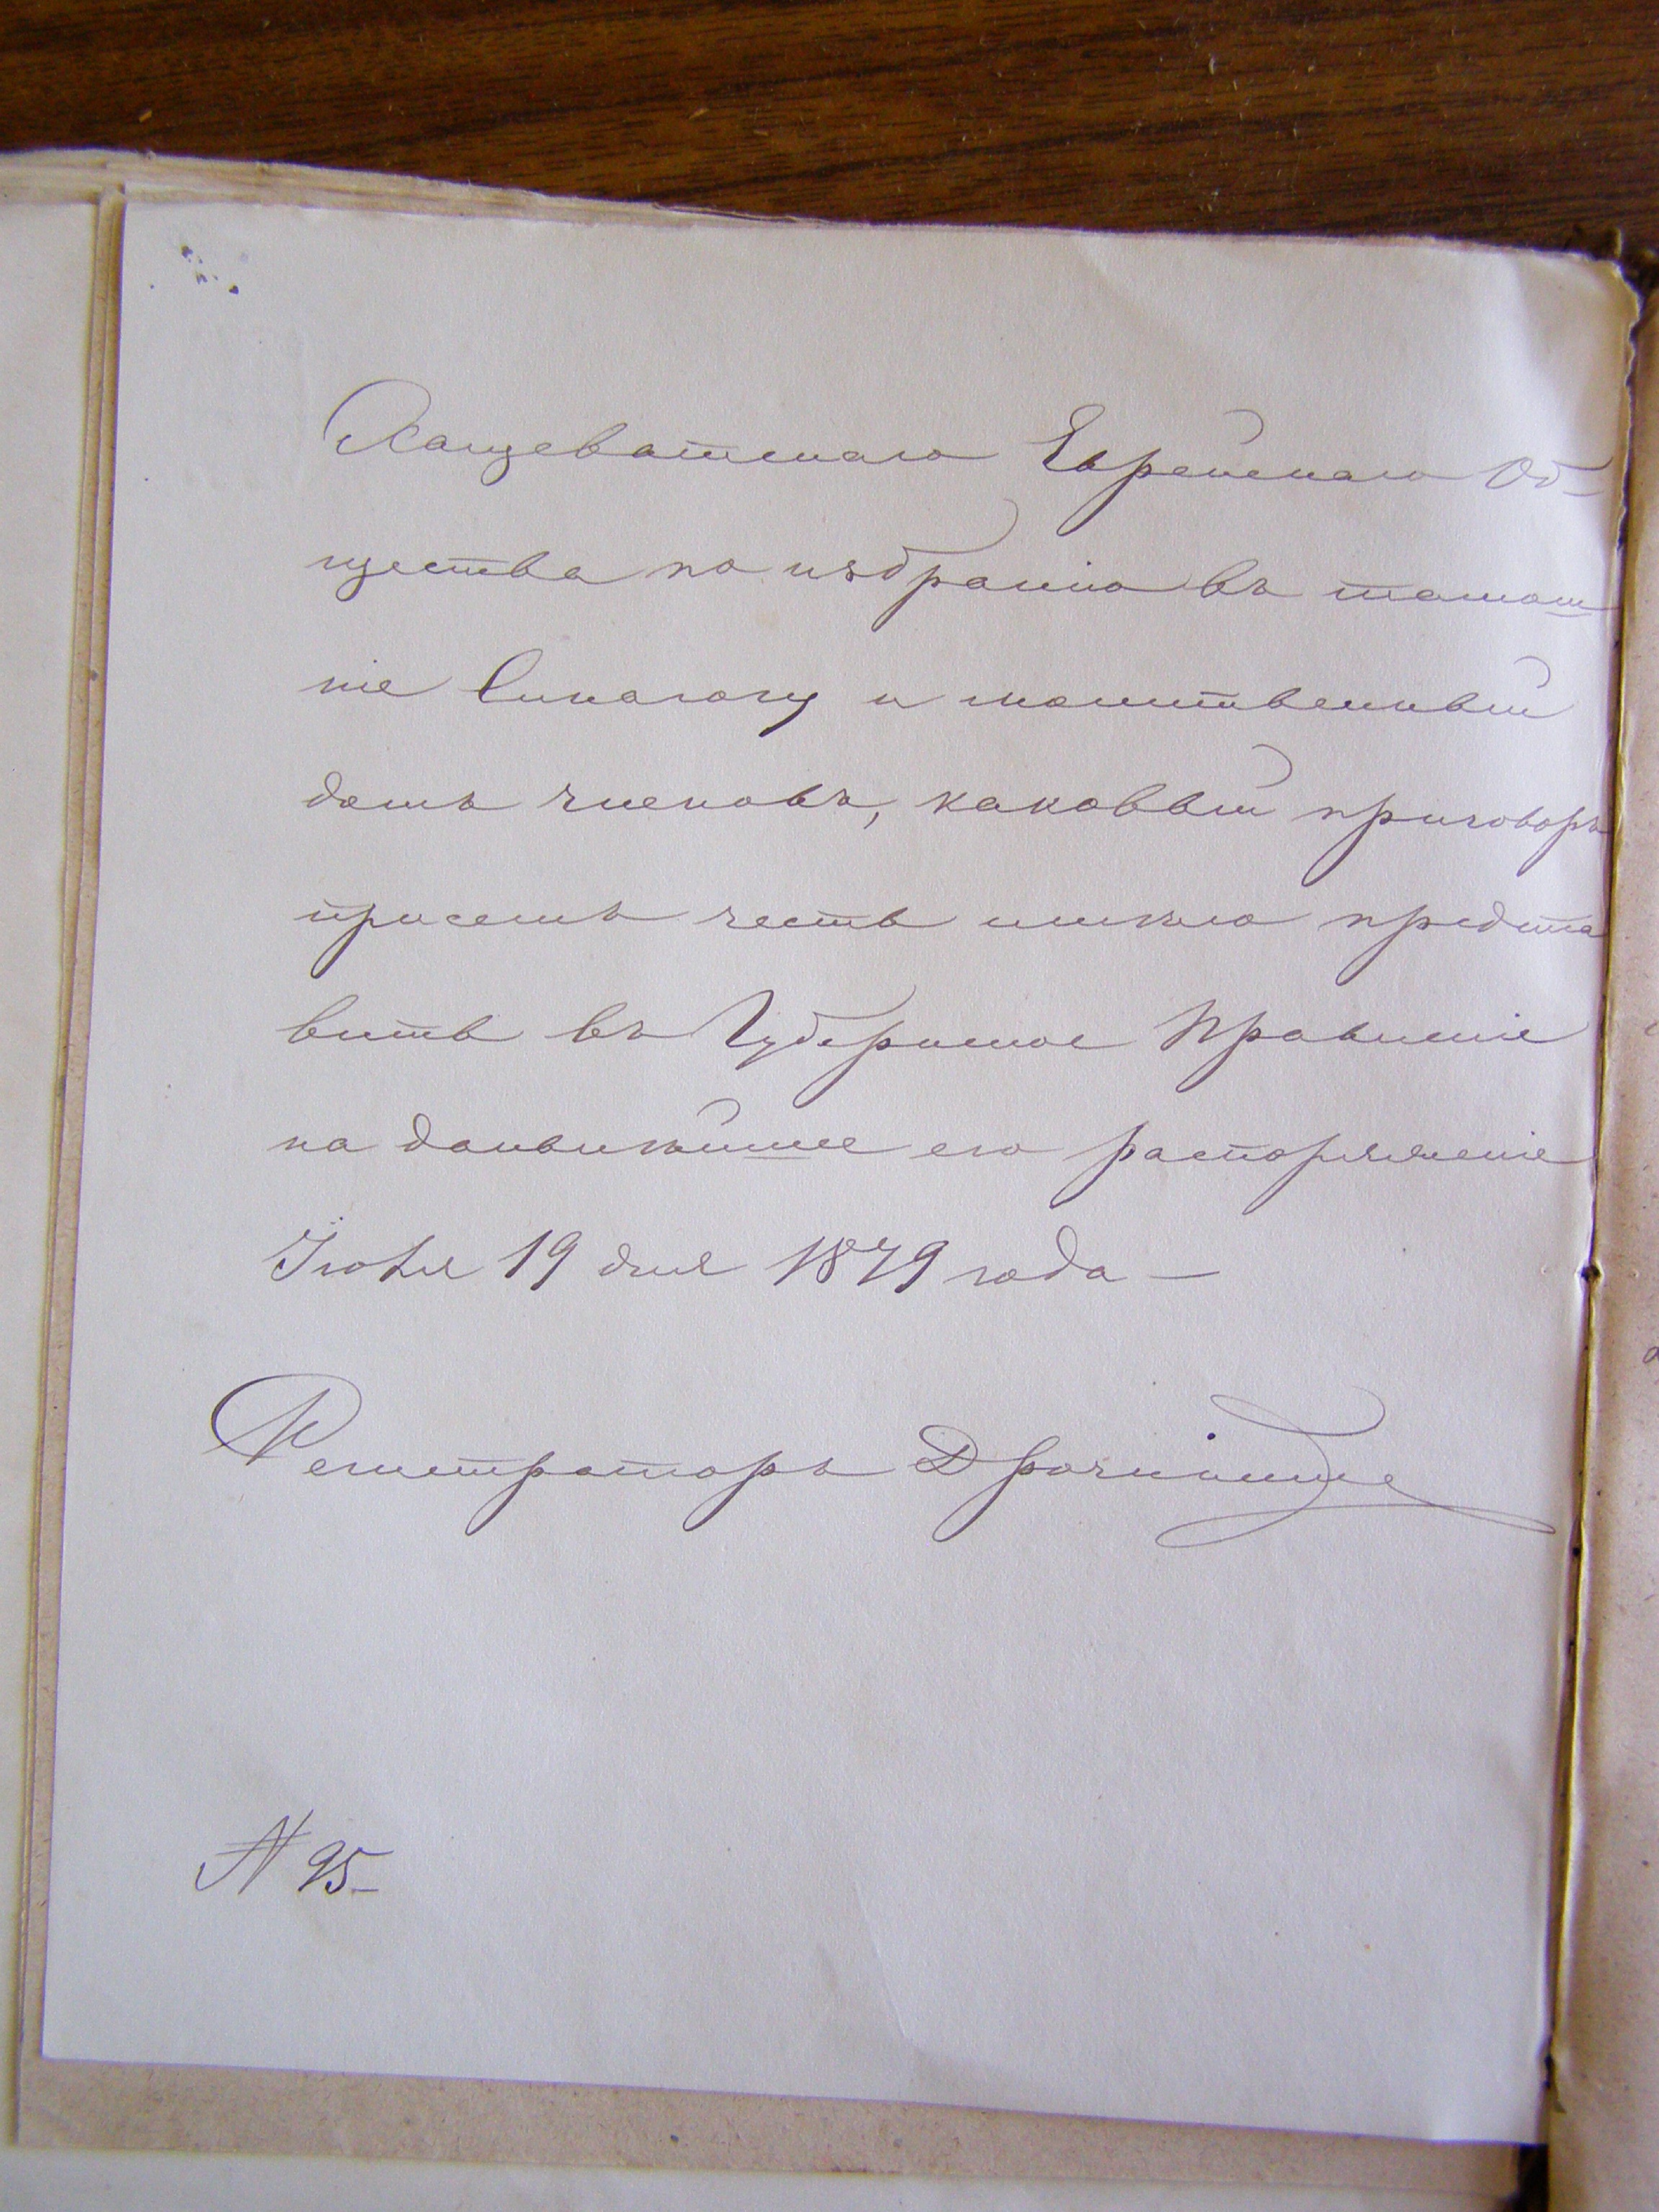 Хащеватскаго Еврейскаго Об-
щества по избранію въ тамош
ніе Синагогу и молитвенный
домъ членовъ, каковый приговоръ
при семъ честь имѣю предста
вить въ Губернское Правленіе
на дальнѣйшее его распоряженіе
Іюня 19 дня 1879 года —
Регистраторъ
N 95